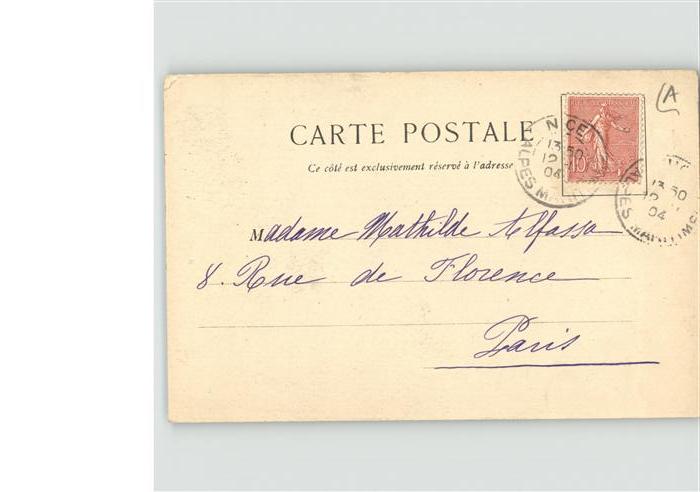 CARTE POSTALE
Ce côté est exclusivement réservé à l'adresse
Madame Mathilde Alfassa
8. Rue de Florence
Paris
NICE
13 30
12
04
ALPES MARITIMES
10
13 30
12
04
ALPES MARITIMES
A